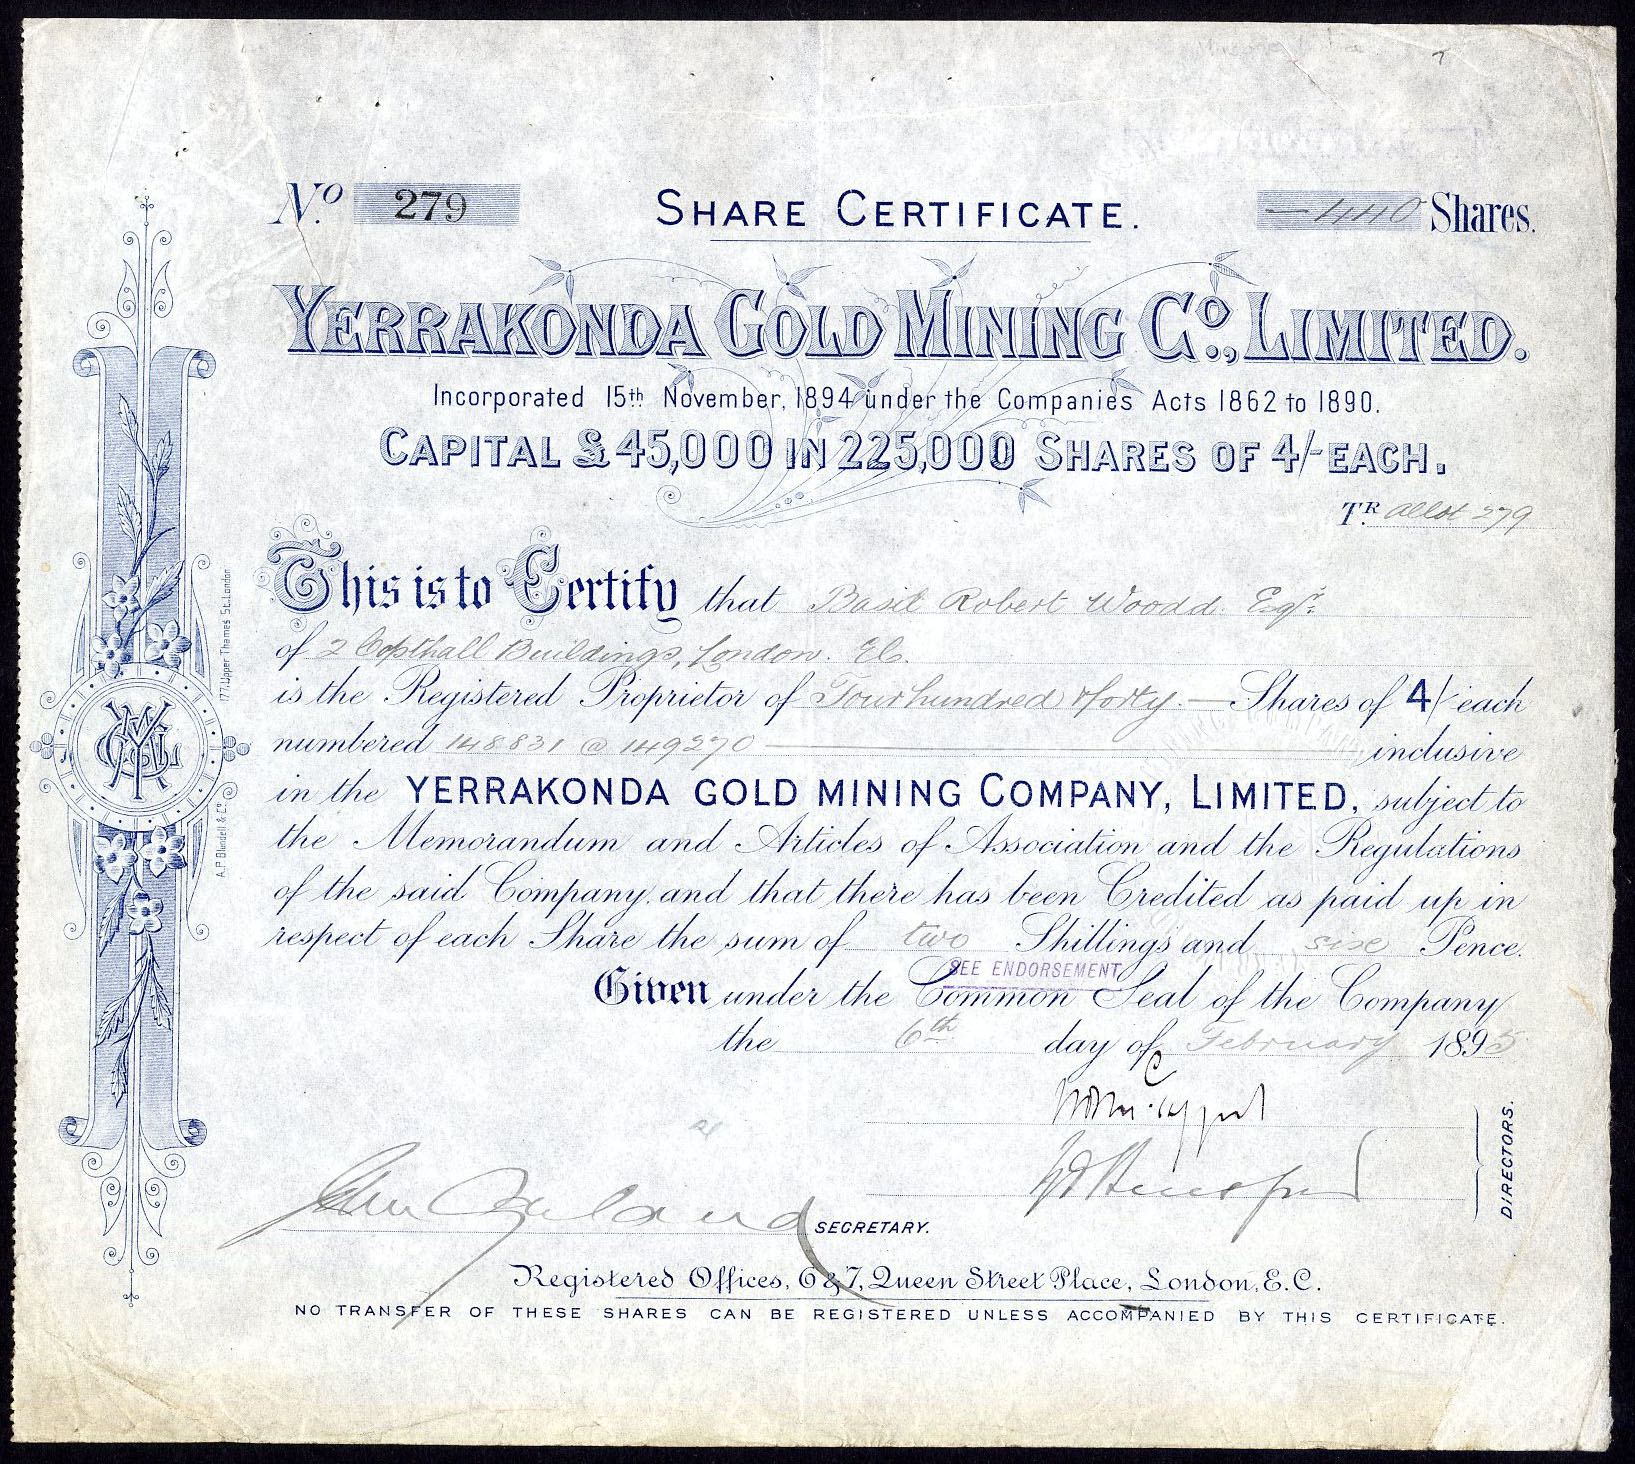 No. 279 SHARE CERTIFICATE. — 440 Shares.
YERRAKONDA GOLD MINING Co., LIMITED.
Incorporated 15th November, 1894 under the Companies Acts 1862 to 1890.
CAPITAL £45,000 IN 225,000 SHARES OF 4/- EACH.
TR. Allot 279
This is to Certify that Basil Robert Woodd Esqr.
of 2 Copthall Buildings, London. E.C.
is the Registered Proprietor of Four hundred & forty — Shares of 4/- each
numbered 148831 @ 149270 — inclusive
in the YERRAKONDA GOLD MINING COMPANY, LIMITED, subject to
the Memorandum and Articles of Association and the Regulations
of the said Company, and that there has been Credited as paid up in
respect of each Share the sum of two Shillings and six Pence.
SEE ENDORSEMENT
Given under the Common Seal of the Company
the 6th day of February 1895
DIRECTORS.
SECRETARY.
Registered Offices, 6 & 7, Queen Street Place, London, E.C.
NO TRANSFER OF THESE SHARES CAN BE REGISTERED UNLESS ACCOMPANIED BY THIS CERTIFICATE.
A.P. Blundell & Co. 177, Upper Thames St. London